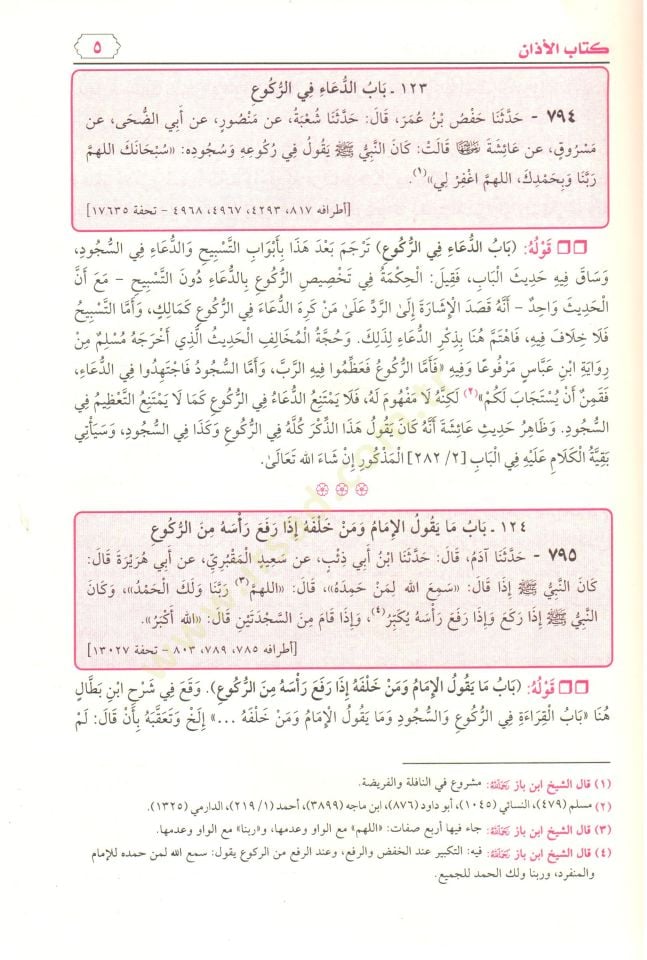 كتاب الأذان
٥
١٢٣ ـ بَابُ الدُّعَاءِ فِي الرُّكُوعِ
٧٩٤ - حَدَّثَنَا حَفْصُ بْنُ عُمَرَ، قَالَ: حَدَّثَنَا شُعْبَةُ، عن مَنْصُورٍ، عن أبي الضُّحَى، عن
مَسْرُوقٍ، عن عَائِشَةَ رضي الله عنها قَالَتْ: كَانَ النَّبِيُّ ﷺ يَقُولُ فِي رُكُوعِهِ وَسُجُودِهِ: «سُبْحَانَكَ اللهم
رَبَّنَا وَبِحَمْدِكَ، اللهم اغْفِرْ لِي»(١).
[أطرافه ٨١٧، ٤٢٩٣، ٤٩٦٧، ٤٩٦٨ - تحفة ١٧٦٣٥]
قَوْلُهُ: (بَابُ الدُّعَاءِ فِي الرُّكُوعِ) تَرْجَمَ بَعْدَ هَذَا بِأَبْوَابِ التَّسْبِيحِ وَالدُّعَاءِ فِي السُّجُودِ،
وَسَاقَ فِيهِ حَدِيثَ الْبَابِ، فَقِيلَ: الْحِكْمَةُ فِي تَخْصِيصِ الرُّكُوعِ بِالدُّعَاءِ دُونَ التَّسْبِيحِ - مَعَ أَنَّ
الْحَدِيثَ وَاحِدٌ - أَنَّهُ قَصَدَ الْإِشَارَةَ إِلَى الرَّدِّ عَلَى مَنْ كَرِهَ الدُّعَاءَ فِي الرُّكُوعِ كَمَالِكٍ، وَأَمَّا التَّسْبِيحُ
فَلَا خِلَافَ فِيهِ، فَاهْتَمَّ هُنَا بِذِكْرِ الدُّعَاءِ لِذَلِكَ. وَحُجَّةُ الْمُخَالِفِ الْحَدِيثُ الَّذِي أَخْرَجَهُ مُسْلِمٌ مِنْ
رِوَايَةِ ابْنِ عَبَّاسٍ مَرْفُوعًا وَفِيهِ «فَأَمَّا الرُّكُوعُ فَعَظِّمُوا فِيهِ الرَّبَّ، وَأَمَّا السُّجُودُ فَاجْتَهِدُوا فِي الدُّعَاءِ،
فَقَمِنٌ أَنْ يُسْتَجَابَ لَكُمْ»(٢) لَكِنَّهُ لَا مَفْهُومَ لَهُ، فَلَا يَمْتَنِعُ الدُّعَاءُ فِي الرُّكُوعِ كَمَا لَا يَمْتَنِعُ التَّعْظِيمُ فِي
السُّجُودِ. وَظَاهِرُ حَدِيثِ عَائِشَةَ أَنَّهُ كَانَ يَقُولُ هَذَا الذِّكْرَ كُلَّهُ فِي الرُّكُوعِ وَكَذَا فِي السُّجُودِ، وَسَيَأْتِي
بَقِيَّةُ الْكَلَامِ عَلَيْهِ فِي الْبَابِ [٢/ ٢٨٢] الْمَذْكُورِ إِنْ شَاءَ الله تَعَالَى.
١٢٤ ـ بَابُ مَا يَقُولُ الإِمَامُ وَمَنْ خَلْفَهُ إِذَا رَفَعَ رَأْسَهُ مِنَ الرُّكُوعِ
٧٩٥ - حَدَّثَنَا آدَمُ، قَالَ: حَدَّثَنَا ابْنُ أَبِي ذِئْبٍ، عن سَعِيدٍ الْمَقْبُرِيِّ، عن أَبِي هُرَيْرَةَ قَالَ:
كَانَ النَّبِيُّ ﷺ إِذَا قَالَ: «سَمِعَ الله لِمَنْ حَمِدَهُ»، قَالَ: «اللهم(٣) رَبَّنَا وَلَكَ الْحَمْدُ»، وَكَانَ
النَّبِيُّ ﷺ إِذَا رَكَعَ وَإِذَا رَفَعَ رَأْسَهُ يُكَبِّرُ(٤)، وَإِذَا قَامَ مِنَ السَّجْدَتَيْنِ قَالَ: «الله أَكْبَرُ».
[أطرافه ٧٨٥، ٧٨٩، ٨٠٣ - تحفة ١٣٠٢٧]
قَوْلُهُ: (بَابُ مَا يَقُولُ الْإِمَامُ وَمَنْ خَلْفَهُ إِذَا رَفَعَ رَأْسَهُ مِنَ الرُّكُوعِ). وَقَعَ فِي شَرْحِ ابْنِ بَطَّالٍ
هُنَا «بَابُ الْقِرَاءَةِ فِي الرُّكُوعِ وَالسُّجُودِ وَمَا يَقُولُ الْإِمَامُ وَمَنْ خَلْفَهُ ...» إِلَخْ وَتَعَقَّبَهُ بِأَنْ قَالَ: لَمْ
(١) قال الشيخ ابن باز رحمه الله: مشروع في النافلة والفريضة.
(٢) مسلم (٤٧٩)، النسائي (١٠٤٥)، أبو داود (٨٧٦)، ابن ماجه (٣٨٩٩)، أحمد (١/ ٢١٩)، الدارمي (١٣٢٥).
(٣) قال الشيخ ابن باز رحمه الله: جاء فيها أربع صفات: «اللهم» مع الواو وعدمها، و«ربنا» مع الواو وعدمها.
(٤) قال الشيخ ابن باز رحمه الله: فيه: التكبير عند الخفض والرفع، وعند الرفع من الركوع يقول: سمع الله لمن حمده للإمام
والمنفرد، وربنا ولك الحمد للجميع.